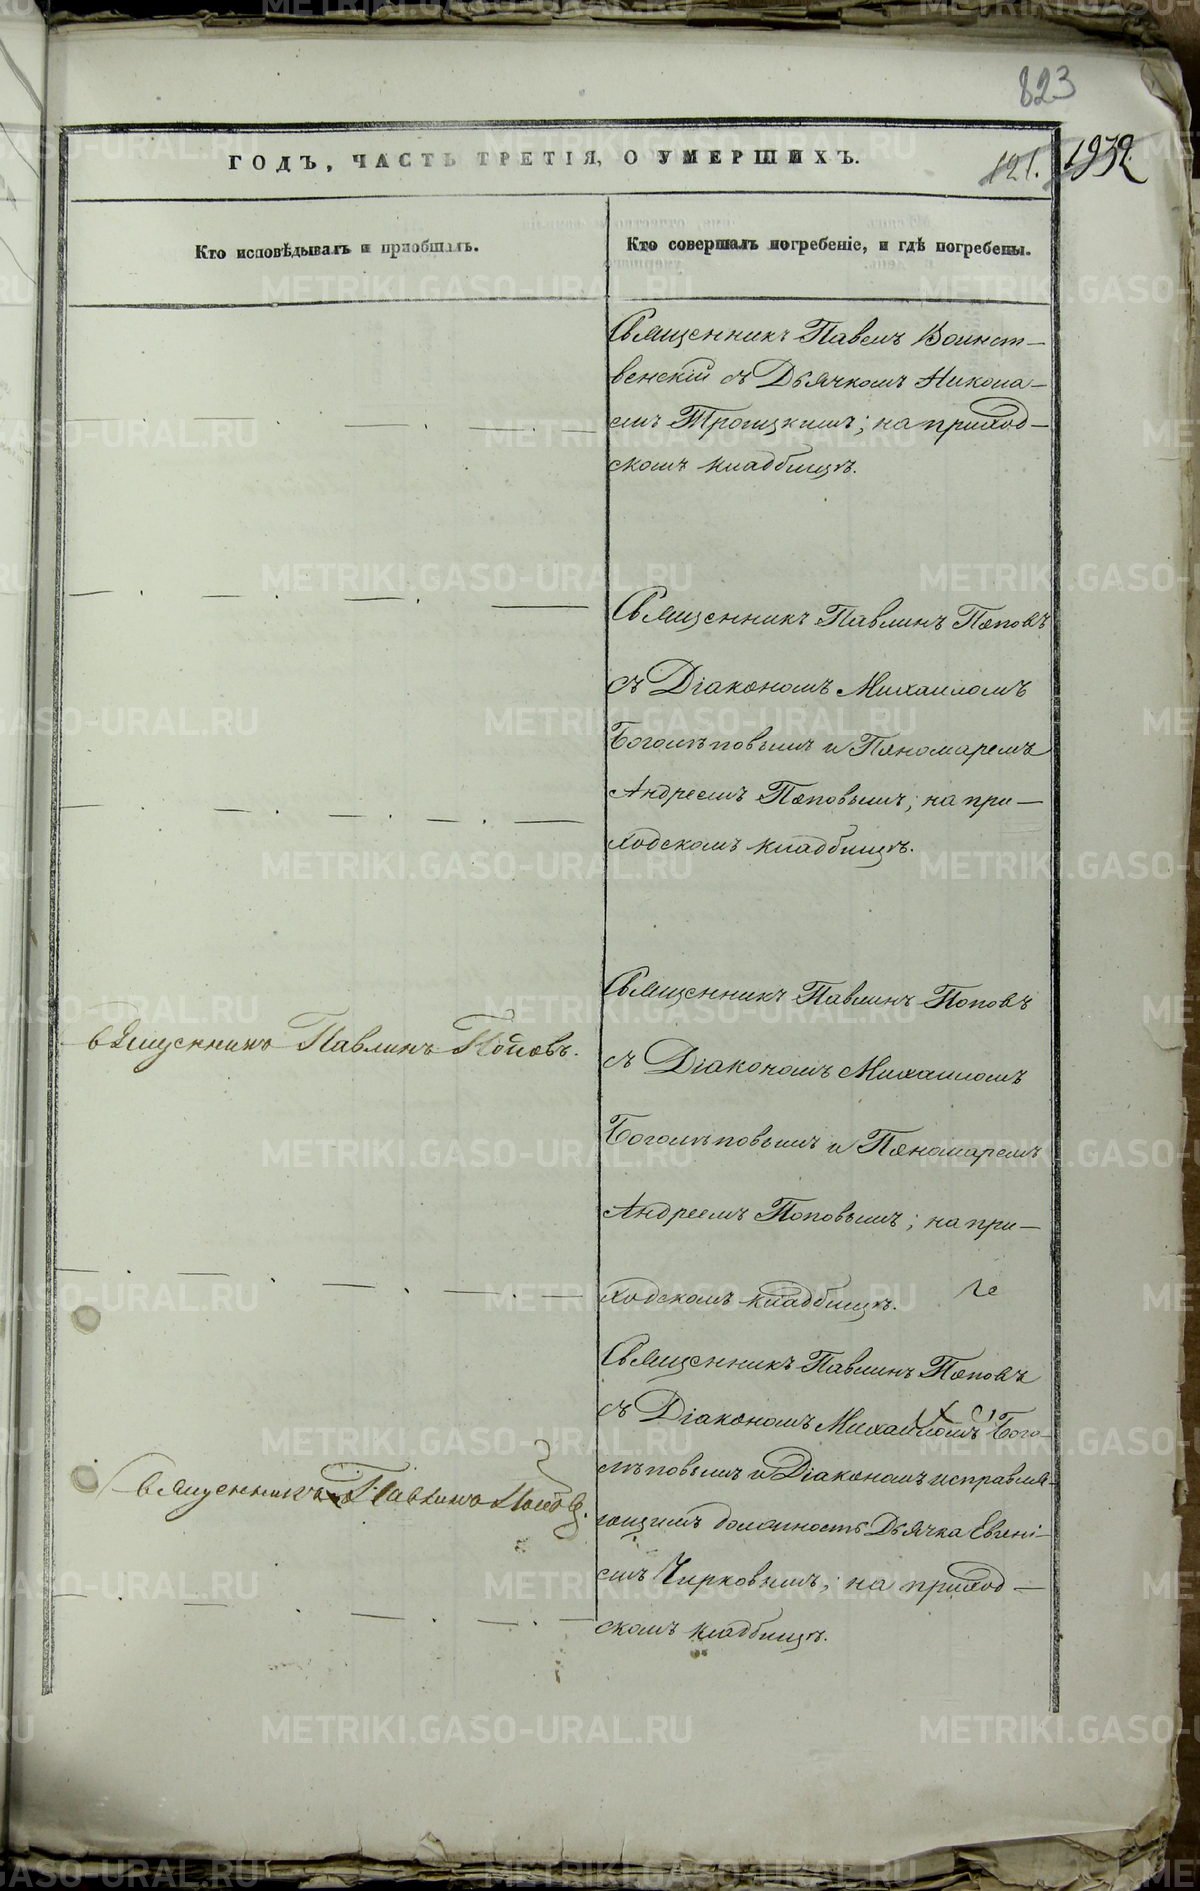 823
ГОДЪ, ЧАСТЬ ТРЕТІЯ, О УМЕРШИХЪ.
121. 1932.
Кто исповѣдывалъ и пріобщалъ.
Кто совершалъ погребеніе, и гдѣ погребены.
Священникъ Павелъ Воинст-
венскій съ Дьячкомъ Никола-
емъ Троицкимъ; на приход-
скомъ кладбищѣ.
Священникъ Павлинъ Поповъ
съ Діакономъ Михаиломъ
Боголѣповымъ и Пономаремъ
Андреемъ Поповымъ; на при-
ходскомъ кладбищѣ.
Священникъ Павлинъ Поповъ.
Священникъ Павлинъ Поповъ
съ Діакономъ Михаиломъ
Боголѣповымъ и Пономаремъ
Андреемъ Поповымъ; на при-
ходскомъ кладбищѣ.
Священникъ Павлинъ Поповъ.
Священникъ Павлинъ Поповъ
съ Діакономъ Михаиломъ Бого-
лѣповымъ и Діакономъ исправля-
ющимъ должность Дьячка Евгені-
емъ Чирковымъ; на приход-
скомъ кладбищѣ.
METRIKI.GASO-URAL.RU